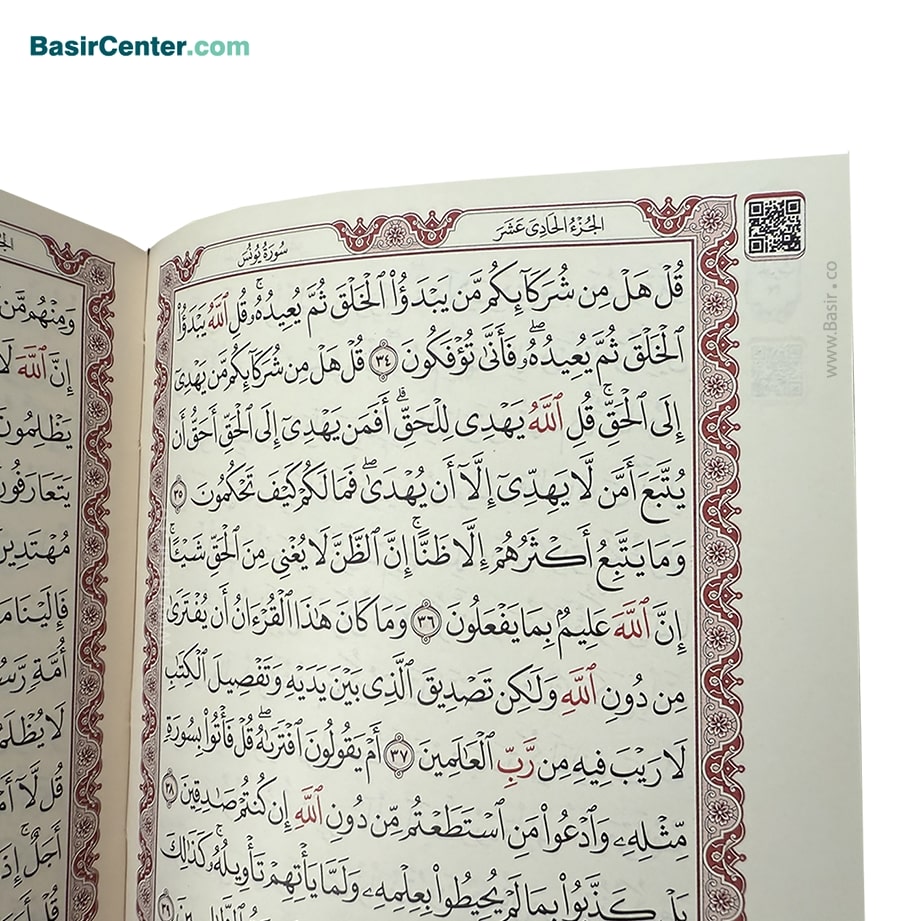 BasirCenter.com
الجُزْءُ الحَادِى عَشَرَ
سُورَةُ يُونُسَ
www.Basir.co
قُلْ هَلْ مِن شُرَكَآئِكُم مَّن يَبْدَؤُا۟ ٱلْخَلْقَ ثُمَّ يُعِيدُهُۥ ۚ قُلِ ٱللَّهُ يَبْدَؤُا۟
ٱلْخَلْقَ ثُمَّ يُعِيدُهُۥ ۖ فَأَنَّىٰ تُؤْفَكُونَ ٣٤ قُلْ هَلْ مِن شُرَكَآئِكُم مَّن يَهْدِىٓ
إِلَى ٱلْحَقِّ ۚ قُلِ ٱللَّهُ يَهْدِى لِلْحَقِّ ۗ أَفَمَن يَهْدِىٓ إِلَى ٱلْحَقِّ أَحَقُّ أَن
يُتَّبَعَ أَمَّن لَّا يَهِدِّىٓ إِلَّآ أَن يُهْدَىٰ ۖ فَمَا لَكُمْ كَيْفَ تَحْكُمُونَ ٣٥
وَمَا يَتَّبِعُ أَكْثَرُهُمْ إِلَّا ظَنًّا ۚ إِنَّ ٱلظَّنَّ لَا يُغْنِى مِنَ ٱلْحَقِّ شَيْـًٔا ۚ
إِنَّ ٱللَّهَ عَلِيمٌۢ بِمَا يَفْعَلُونَ ٣٦ وَمَا كَانَ هَٰذَا ٱلْقُرْءَانُ أَن يُفْتَرَىٰ
مِن دُونِ ٱللَّهِ وَلَٰكِن تَصْدِيقَ ٱلَّذِى بَيْنَ يَدَيْهِ وَتَفْصِيلَ ٱلْكِتَٰبِ
لَا رَيْبَ فِيهِ مِن رَّبِّ ٱلْعَٰلَمِينَ ٣٧ أَمْ يَقُولُونَ ٱفْتَرَىٰهُ ۖ قُلْ فَأْتُوا۟ بِسُورَةٍ
مِّثْلِهِۦ وَٱدْعُوا۟ مَنِ ٱسْتَطَعْتُم مِّن دُونِ ٱللَّهِ إِن كُنتُمْ صَٰدِقِينَ ٣٨
بَلْ كَذَّبُوا۟ بِمَا لَمْ يُحِيطُوا۟ بِعِلْمِهِۦ وَلَمَّا يَأْتِهِمْ تَأْوِيلُهُۥ ۚ كَذَٰلِكَ
وَمِنْهُم مَّن
إِنَّ ٱللَّهَ لَا
يَظْلِمُونَ
يَتَعَارَفُونَ
مُهْتَدِينَ
فَإِلَيْنَا مَ
أُمَّةٍ رَّسُ
لَا يُظْلَمُ
قُل لَّآ أَمْ
أَجَلٌ ۚ إِذَ